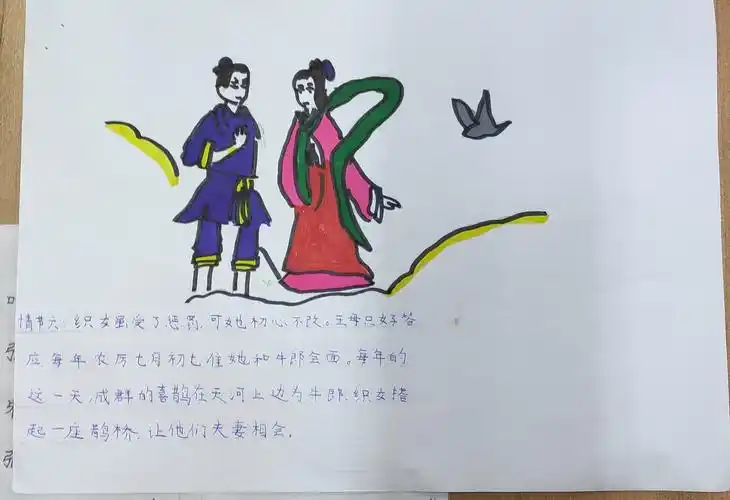 情节六：织女虽受了惩罚，可她初心不改。王母只好答
应每年农历七月初七住她和牛郎会面。每年的
这一天，成群的喜鹊在天河上边为牛郎、织女搭
起一座鹊桥，让他们夫妻相会。